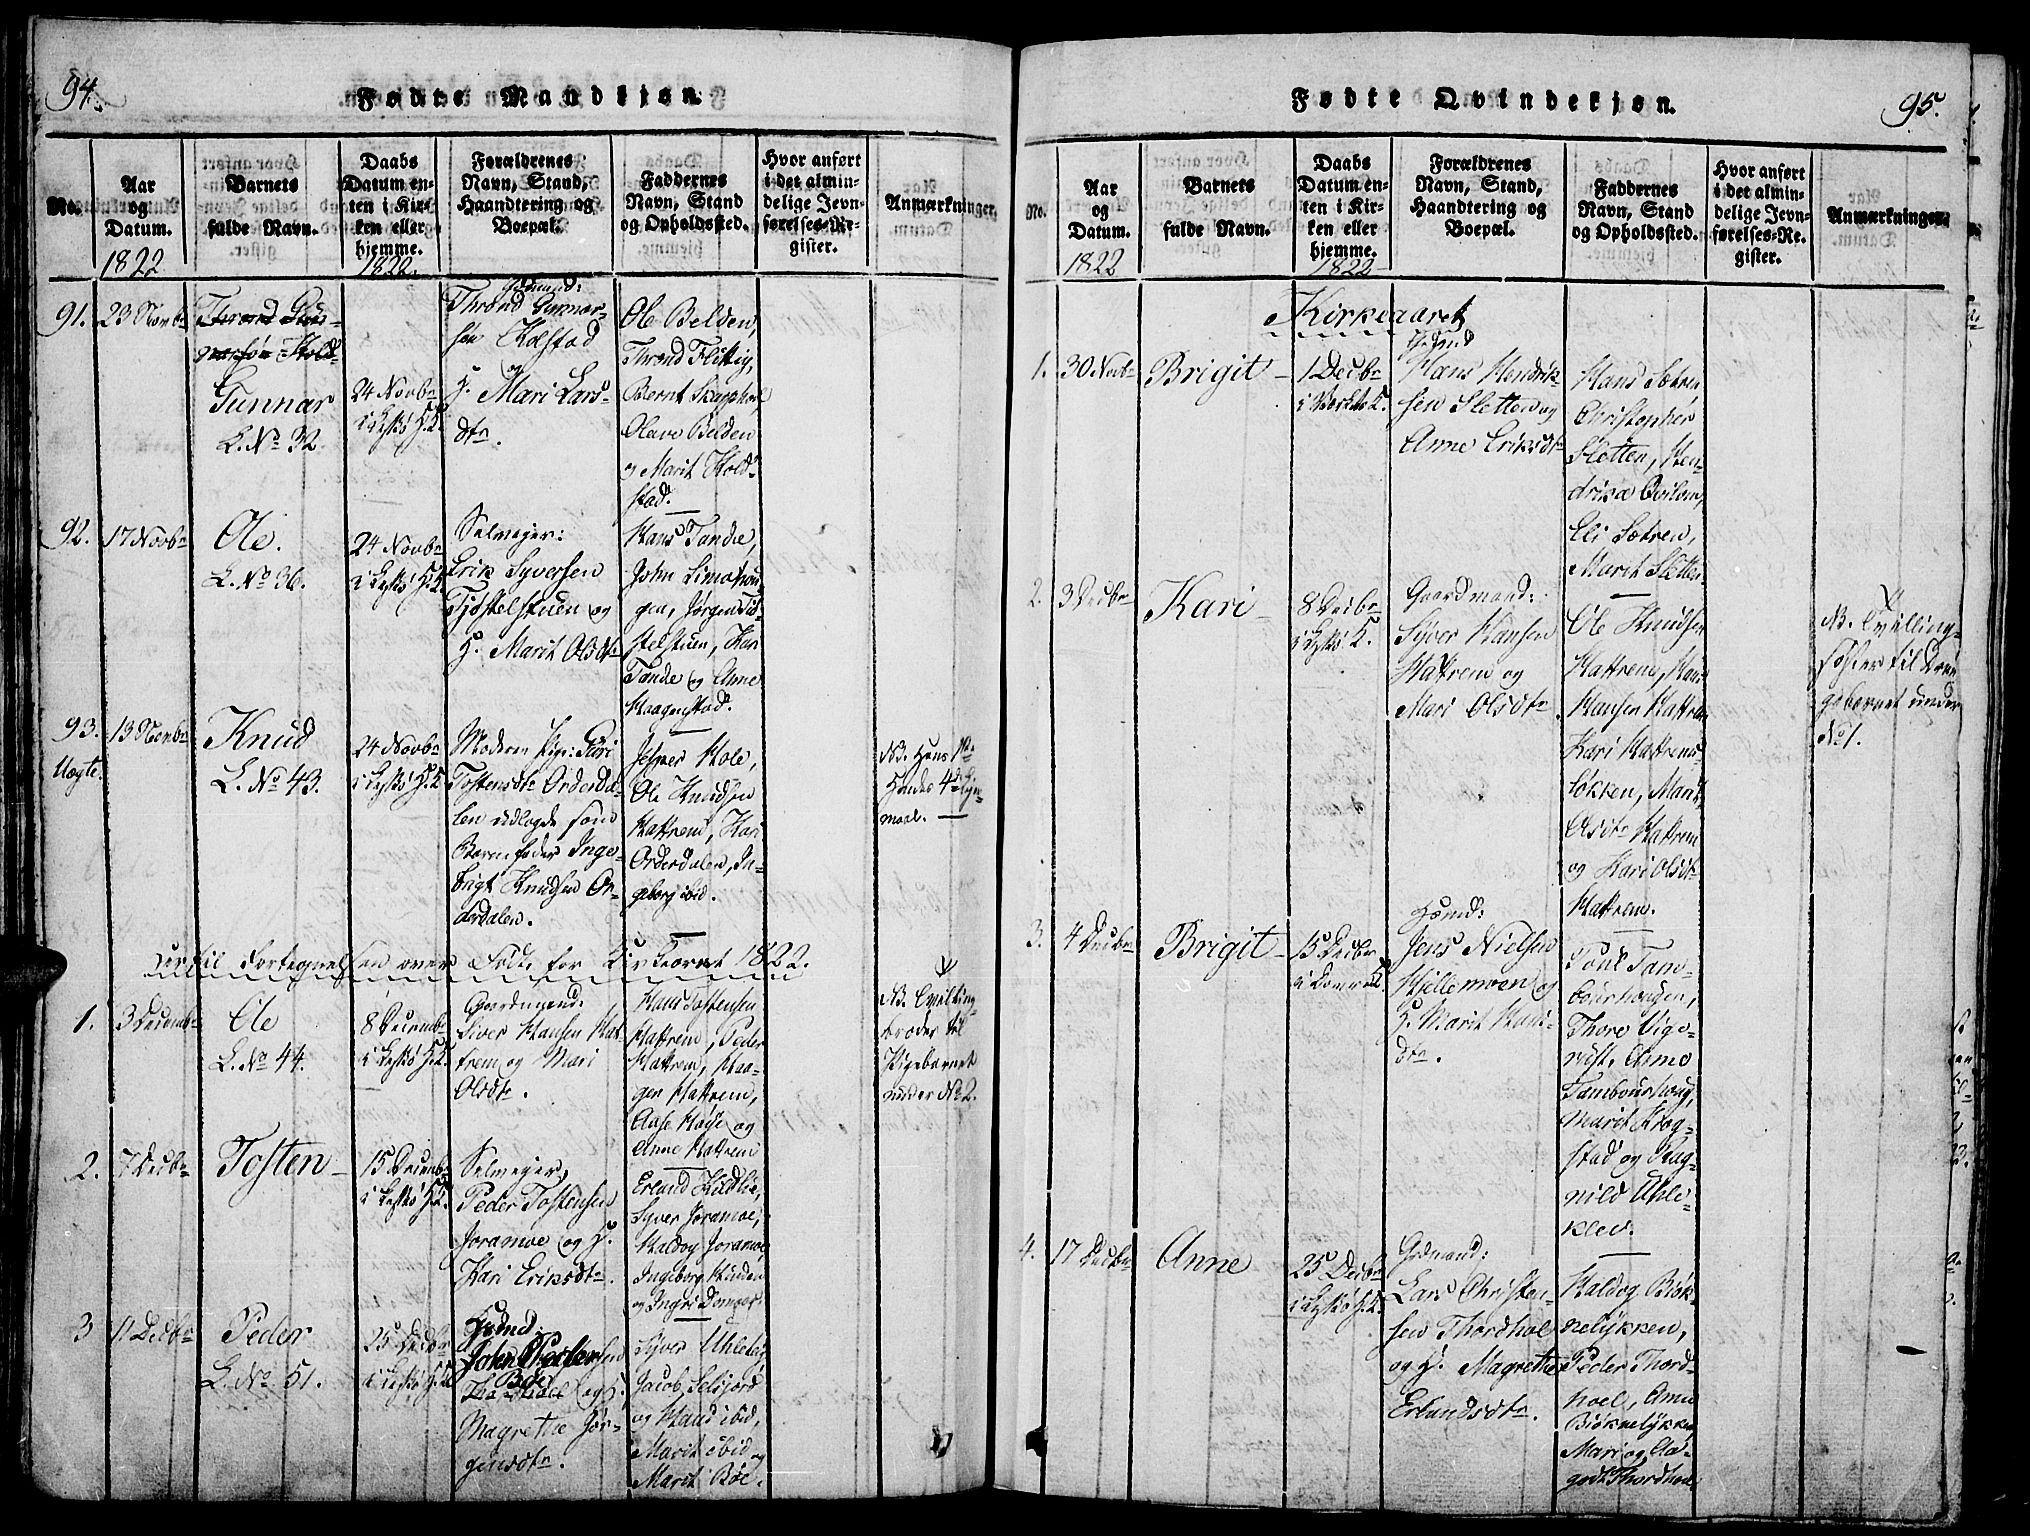 94.
Fødte Mandkjøn.
No.
Aar
og
Datum.
1822
Barnets
fulde Navn.
Daabs
Datum en-
ten i Kir-
ken eller
hjemme.
1822.
Forældrenes
Navn, Stand,
Haandtering og
Boepæl.
Faddernes
Navn, Stand
og Opholdsted.
Hvor anført
i det almin-
delige Jevn-
førelses-Re-
gister.
Anmærkninger.
91.
23 Novbr
Thrond Gun-
narsøn Kold-
Gunnar
L. No 32.
24 Novbr
i Lesjø H.K.
Gdmand:
Thrond Gunnar-
søn Kolstad
og
H. Mari Lars-
dtr.
Ole Belden,
Thrond Flittig,
Bernt Skaphol
Olave Belden
og Marit Kold-
stad.
92.
17 Novbr
Ole.
L. No 36.
24 Novbr
i Lesjø H.K.
Selvejer:
Erik Syversen
Tjøstelstuen og
H. Marit Olsdtr
Hans Tande,
John Limohou-
gen, Jørgen Tiø-
stelstuen, Kari
Tande og Anne
Haagenstad.
93.
Uægte.
13 Novbr
Knud
L. No 43.
24 Novbr
i Lesjø H.K.
Moderen Pige: Guri
Tostensdtr Orderda-
len udlagde som
Barnefader Inge-
brigt Knudsen Or-
derdalen.
Jesper Hole,
Ole Knudsen
Hattrem, Kari
Orderdalen, In-
geborg ibid.
NB. Hans 1ste
Hendes 4de Leger-
maal.
Fortegnelsen over Fødte for Kirkeaaret 1822.
1.
3 Decembr
Ole
L. No 44.
8 Decembr
i Lesjø H.K.
Gaardmand:
Siver Hansen Hat-
trem og Mari
Olsdtr.
Hans Tostensen
Hattrem, Peder
Hattrem, Haa-
gen Hattrem,
Aase Høje og
Anne Hattrem
NB. Tvilling-
broder til
Pigebarnet
under No 2.
2.
7 Decbr
Tosten
15 Decembr
i Lesjø H.K.
Selvejer,
Peder Tostensen
Joramoe og H.
Kari Eriksdtr.
Erland Kildlie,
Syver Joramoe,
Haldog Joramoe
Ingeborg
og Ingri Domaas.
3
11 Decbr
Peder
L. No 51.
25 Decbr
i Lesjø H.K.
Huusmd:
John Pedersen
Bøe og H.
Magrethe Jør-
gensdtr.
Syver Uhleklev
Jacob Selsjord
og Hans ibid,
Marit ibid og
Marit Bøe.
95.
Fødte Qvindekjøn.
No.
Aar
og
Datum.
1822
Barnets
fulde Navn.
Daabs
Datum en-
ten i Kir-
ken eller
hjemme.
1822
Forældrenes
Navn, Stand,
Haandtering og
Boepæl.
Faddernes
Navn, Stand
og Opholdsted.
Hvor anført
i det almin-
delige Jevn-
førelses-Re-
gister.
Anmærkninger.
Kirkeaaret
1.
30 Novbr
Brigit
1 Decbr
i Værkets K.
Hans Hendrik-
sen Sletten og
Anne Eriksdtr
Hans Sætren
Christopher
Sletten, Hen-
drika Qvilom,
Eli Sætren,
Marit Sletten
2.
3 Decbr
Kari
8 Decbr
i Lesjø K.
Gaardmand:
Syver Hansen
Hattrem og
Mari Olsdtr
Ole Knudsen
Hattrem, Hans
Hansen Hattrem
Kari Hattrems-
løkken, Marit
Olsdtr Hattrem
og Kari Olsdtr
Hattrem.
NB. Tvilling-
søster til Dren-
gebarnet under
No 1.
3.
4 Decbr
Brigit
15 Decbr
i Dovre K.
Huusmd:
Jens Nielsen
Hjellemoen og
H. Marit Hans-
dtr.
Poul Tam-
bourhougen,
Thore Vige-
rust, Anne
Tambourshoug,
Marit Krog-
stad og Rag-
nild Uhle-
klev.
4.
17 Decbr
Anne
25 Decbr
i Lesjø H.K.
Gdmand:
Lars Christen-
sen Thordhol
og H. Magrethe
Erlandsdtr.
Haldog Biøk-
nelykken,
Peder Thord-
hoel, Anne
Biøknelykken
Mari og Aa-
godt Thordhoel